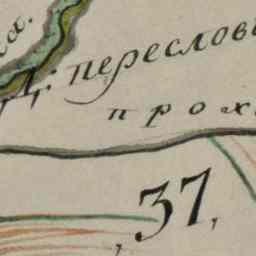 ка.
Д: пересловъ
прох
,37,